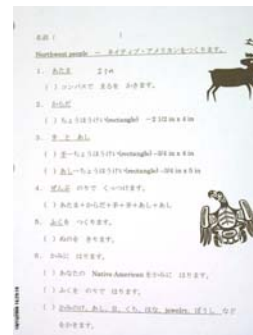 名前 (
Northwest people － ネイティブ・アメリカンをつくります。
1. あたま 2 in
( ) コンパスで まるを かきます。
2. からだ
( ) ちょうほうけい(rectangle) －2 1/2 in x 4 in
3. 手 と あし
( ) 手－ちょうほうけい(rectangle)－3/4 in x 4 in
( ) あし－ちょうほうけい(rectangle)－3/4 in x 5 in
4. ぜんぶ のりで くっつけます。
( ) あたま＋からだ＋手＋手＋あし＋あし
5. ふくを つくります。
( ) ぬのを きります。
6. かみに はります。
( ) あなたの Native American をかみに はります。
( ) ふくを のりで はります。
( ) かみのけ、あし、目、くち、はな、jewelry、ぼうし など
をかきます。